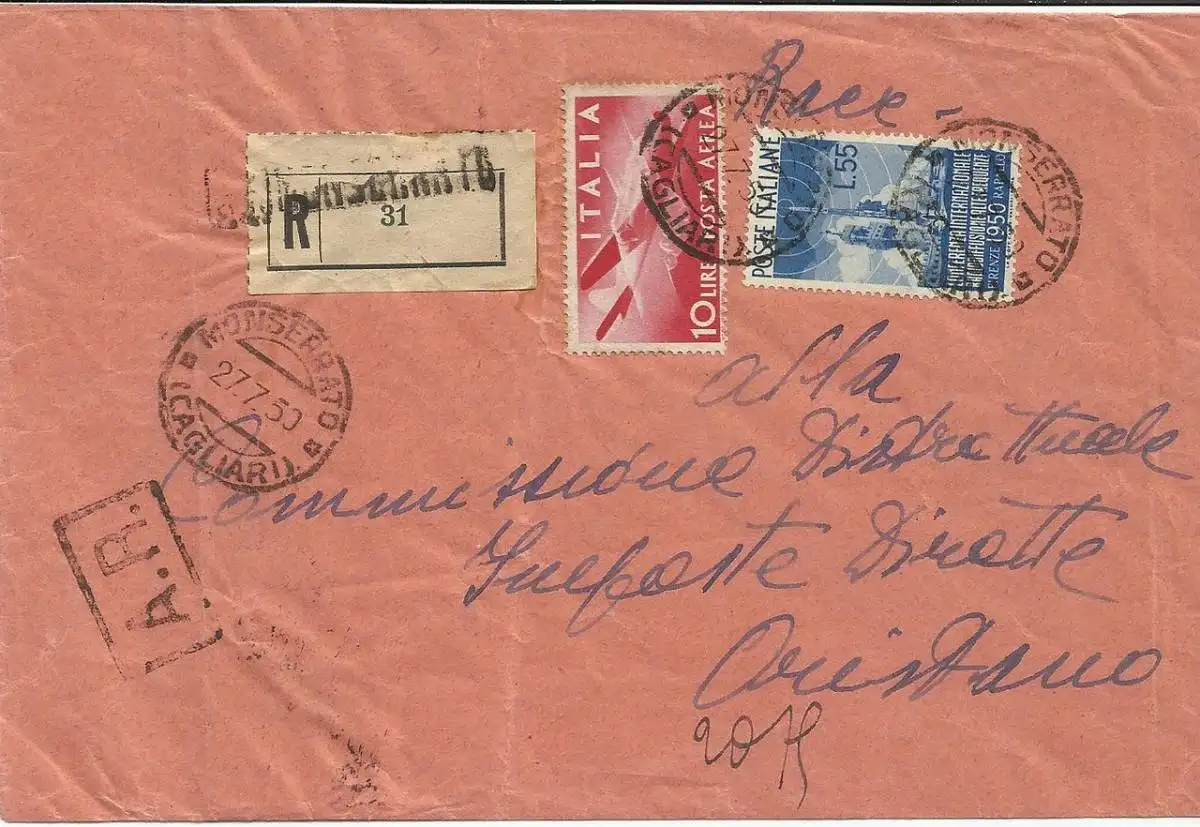 Racc -
R
31
ITALIA
10 LIRE POSTA AEREA
POSTE ITALIANE
L.55
CONFERENZA INTERNAZIONALE
RADIODIFFUSIONE ALTE FREQUENZE
FIRENZE 1950 RAPALLO
MONSERRATO
(CAGLIARI)
MONSERRATO
MONSERRATO
27.7.50
(CAGLIARI)
A.R.
alla
Commissione Distrettuale
Imposte Dirette
Oristano